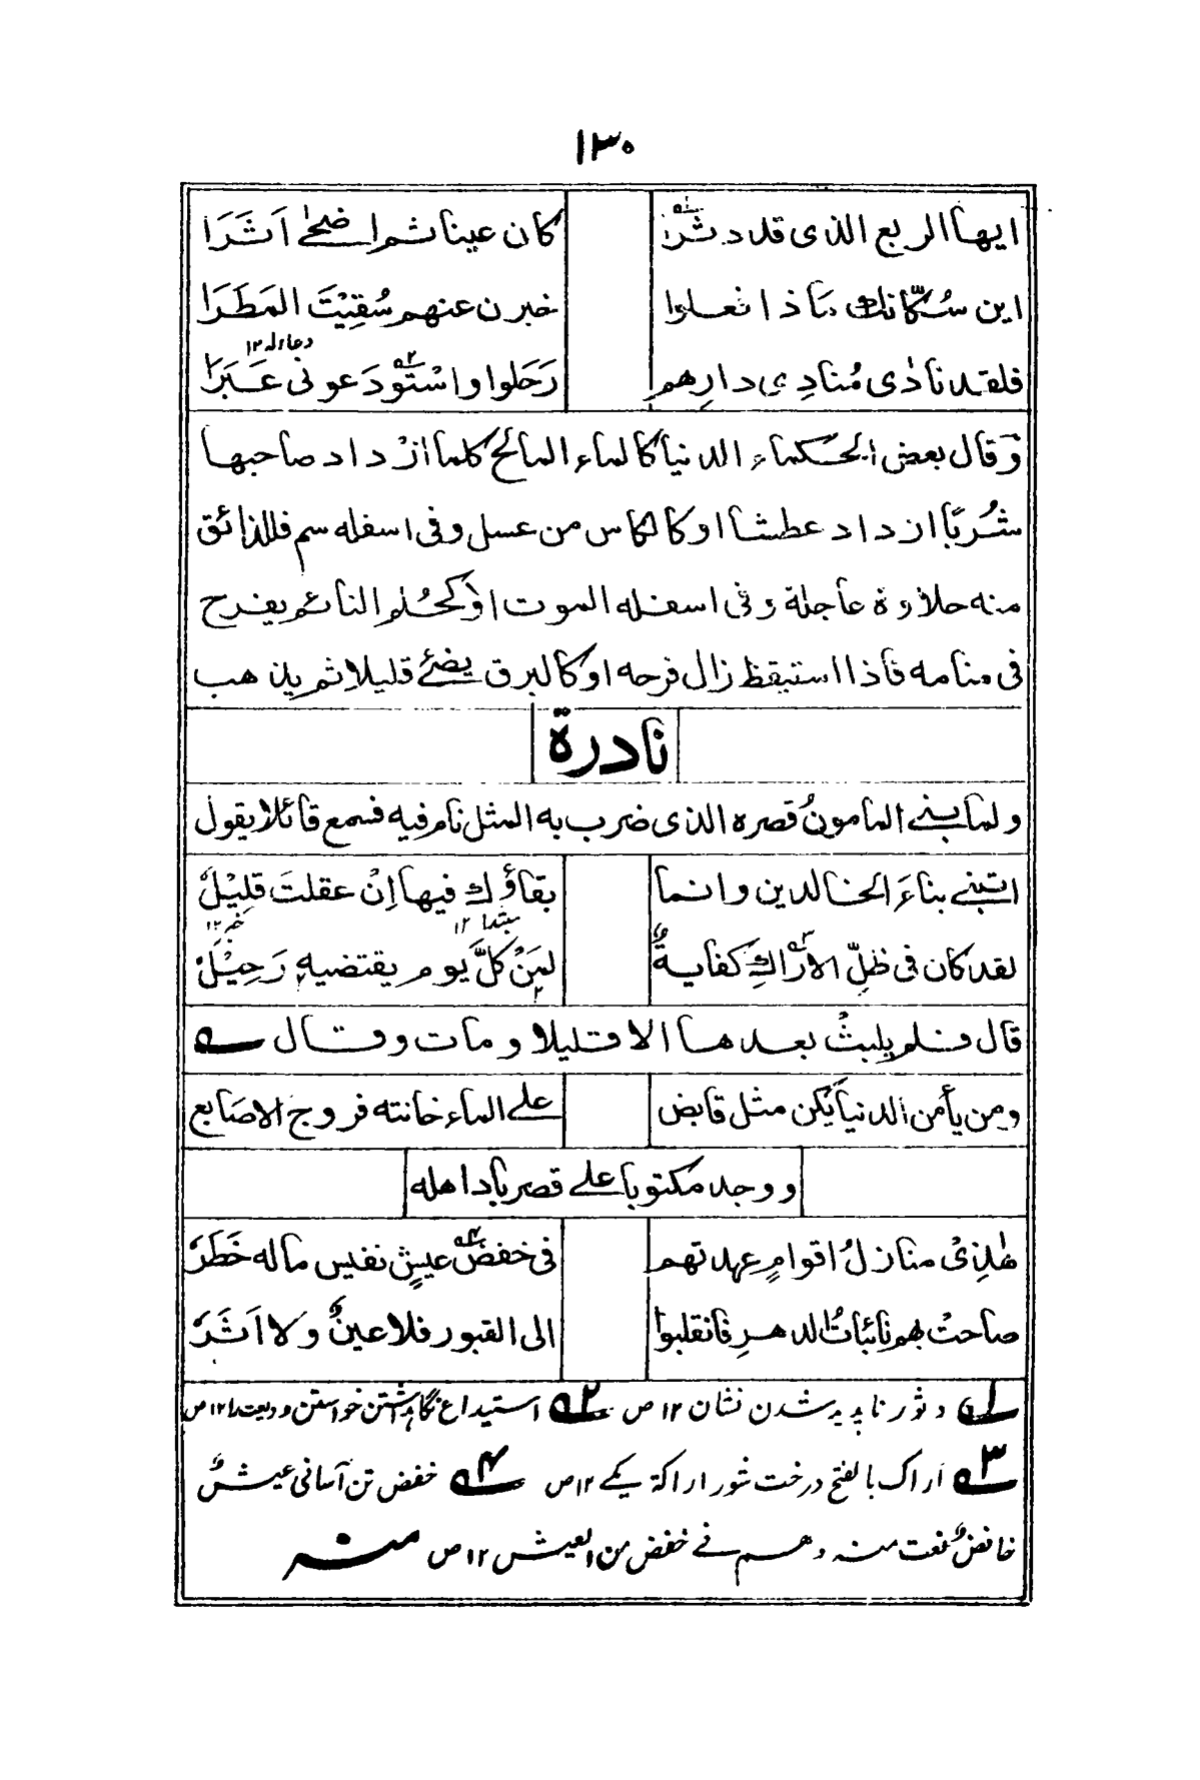 ١٣٠
ايها الربع الذى قد دثرا كان عينا ثم اضحى اَثَرَا
اين سُكّانك ماذا فعلوا خبرن عنهم سُقِيْتَ المَطَرَا
دعاء له ١٢
فلقد نادٰى مُنادِى دارِهم رَحَلوا واسْتَودَعونى عَبَرَا
وَقال بعض الحكماء الدنيا كالماء المالح كلما ازْداد صاحبها
شُربًا ازداد عطشا او كالكاس من عسل وفى اسفله سم فللذائق
منه حلاوة عاجلة وفى اسفله الموت اوْ كحُلم النائم يفرح
فى منامه فاذا استيقظ زال فرحه او كالبرق يضئ قليلا ثم يذهب
نادرة
ولما بنى المامونُ قصره الذى ضرب به المثل نام فيه فسمع قائلا يقول
اتبنى بناءَ الخالدين وانما بقاؤك فيها اِنْ عقلتَ قلِيْلٌ
مبتدا ١٢ خبر ١٢
لقد كان فى ظلِّ الاراكِ كفايةٌ لمَنْ كلَّ يوم يقتضيه رَحِيْلٌ
قال فلم يلبثْ بعدها الا قليلا ومات وقال ے
ومن يأمن الدنيا يَكن مثل قابض على الماء خانته فروج الاصابع
ووجد مكتوبا على قصر باد اهله
هٰذِىْ منازلُ اقوامٍ عهدتهم فى خفضِ عيشٍ نفيس ماله خَطَرٌ
صاحتْ بهم نائباتُ الدهرِ فانقلبوا الى القبور فلا عينٌ ولا اَثَرٌ
١ے دثور ناپدید شدن نشان ١٢ ص ٢ے استیداع نگاہداشتن خواستن ودیعت را ١٢ ص
٣ے اراک بالفتح درخت شور اراکة یکے ١٢ ص ٤ے خفض تن آسانی عیشٌ
خافضٌ نعت منه وهم فے خفض من العیش ١٢ ص منه